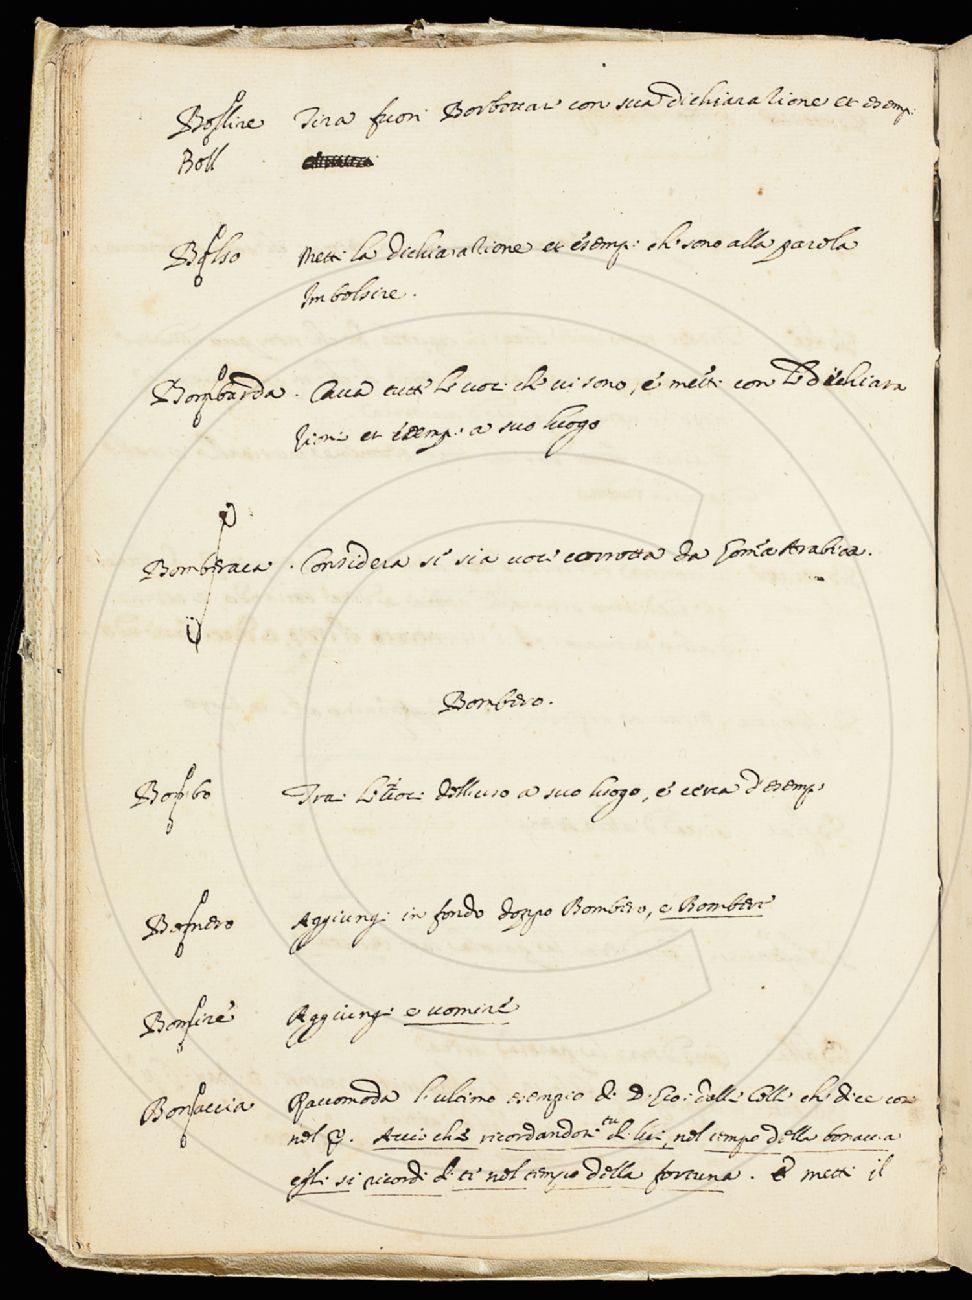 Bollire Tira fuori Borbottar con sua dichiaratione et esempi
Boll
Bolso Metti la dichiaratione et esempi che sono alla parola
Imbolsire.
Bombarda. Cava tutte le voci che vi sono, é metti con le dichiara
tioni et esempi a suo luogo
Bomberaca. Considera se sia voce corrotta da Goma Arabica.
Bombero.
Bombo Trai le voci dell'uso a suo luogo, é cerca d'esempi
Bomero Aggiungi in fondo doppo Bombero, e Bombere
Bomire Aggiungi e vomire
Bonaccia Raccomoda l'ultimo esempio di D. Gio: dalle Celle che dice cosi
nel. Acciò che ricordandoti tu di lui, nel tempo della bonaccia
egli si ricordi di te nel tempo della fortuna. E metti il